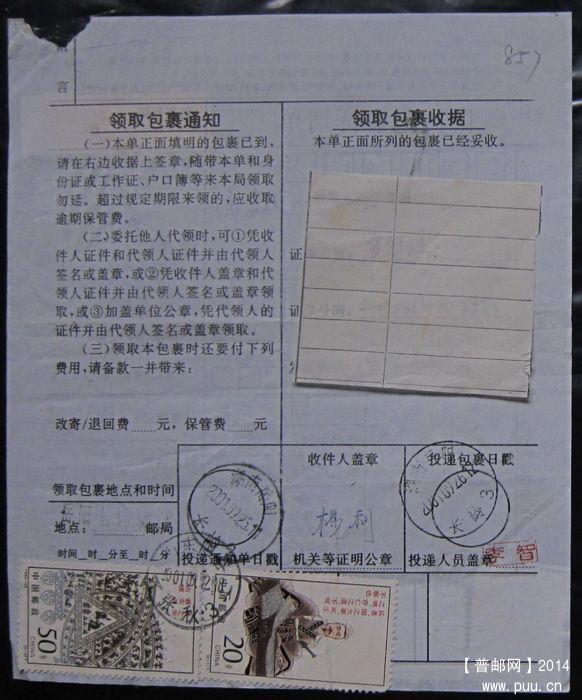 附
言
857
领取包裹通知
(一)本单正面填明的包裹已到,
请在右边收据上签章,随带本单和身
份证或工作证、户口簿等来本局领取
勿延。超过规定期限来领的,应收取
逾期保管费。
(二)委托他人代领时,可①凭收
件人证件和代领人证件并由代领人
签名或盖章,或②凭收件人盖章和代
领人证件并由代领人签名或盖章领
取,或③加盖单位公章,凭代领人的
证件并由代领人签名或盖章领取。
(三)领取本包裹时还要付下列
费用,请备款一并带来:
改寄/退回费 元,保管费 元
领取包裹收据
本单正面所列的包裹已经妥收。
证
证
收件人盖章
投递包裹日戳
领取包裹地点和时间
地点: 邮局
时间 时 分至 时 分
杨利
投递通知单日戳
机关等证明公章
投递人员盖章
李智
长岭
3
长岭
3
中国邮政
CHINA
50分
中国邮政
CHINA
20分
【普邮网】2014
www.puu.cn